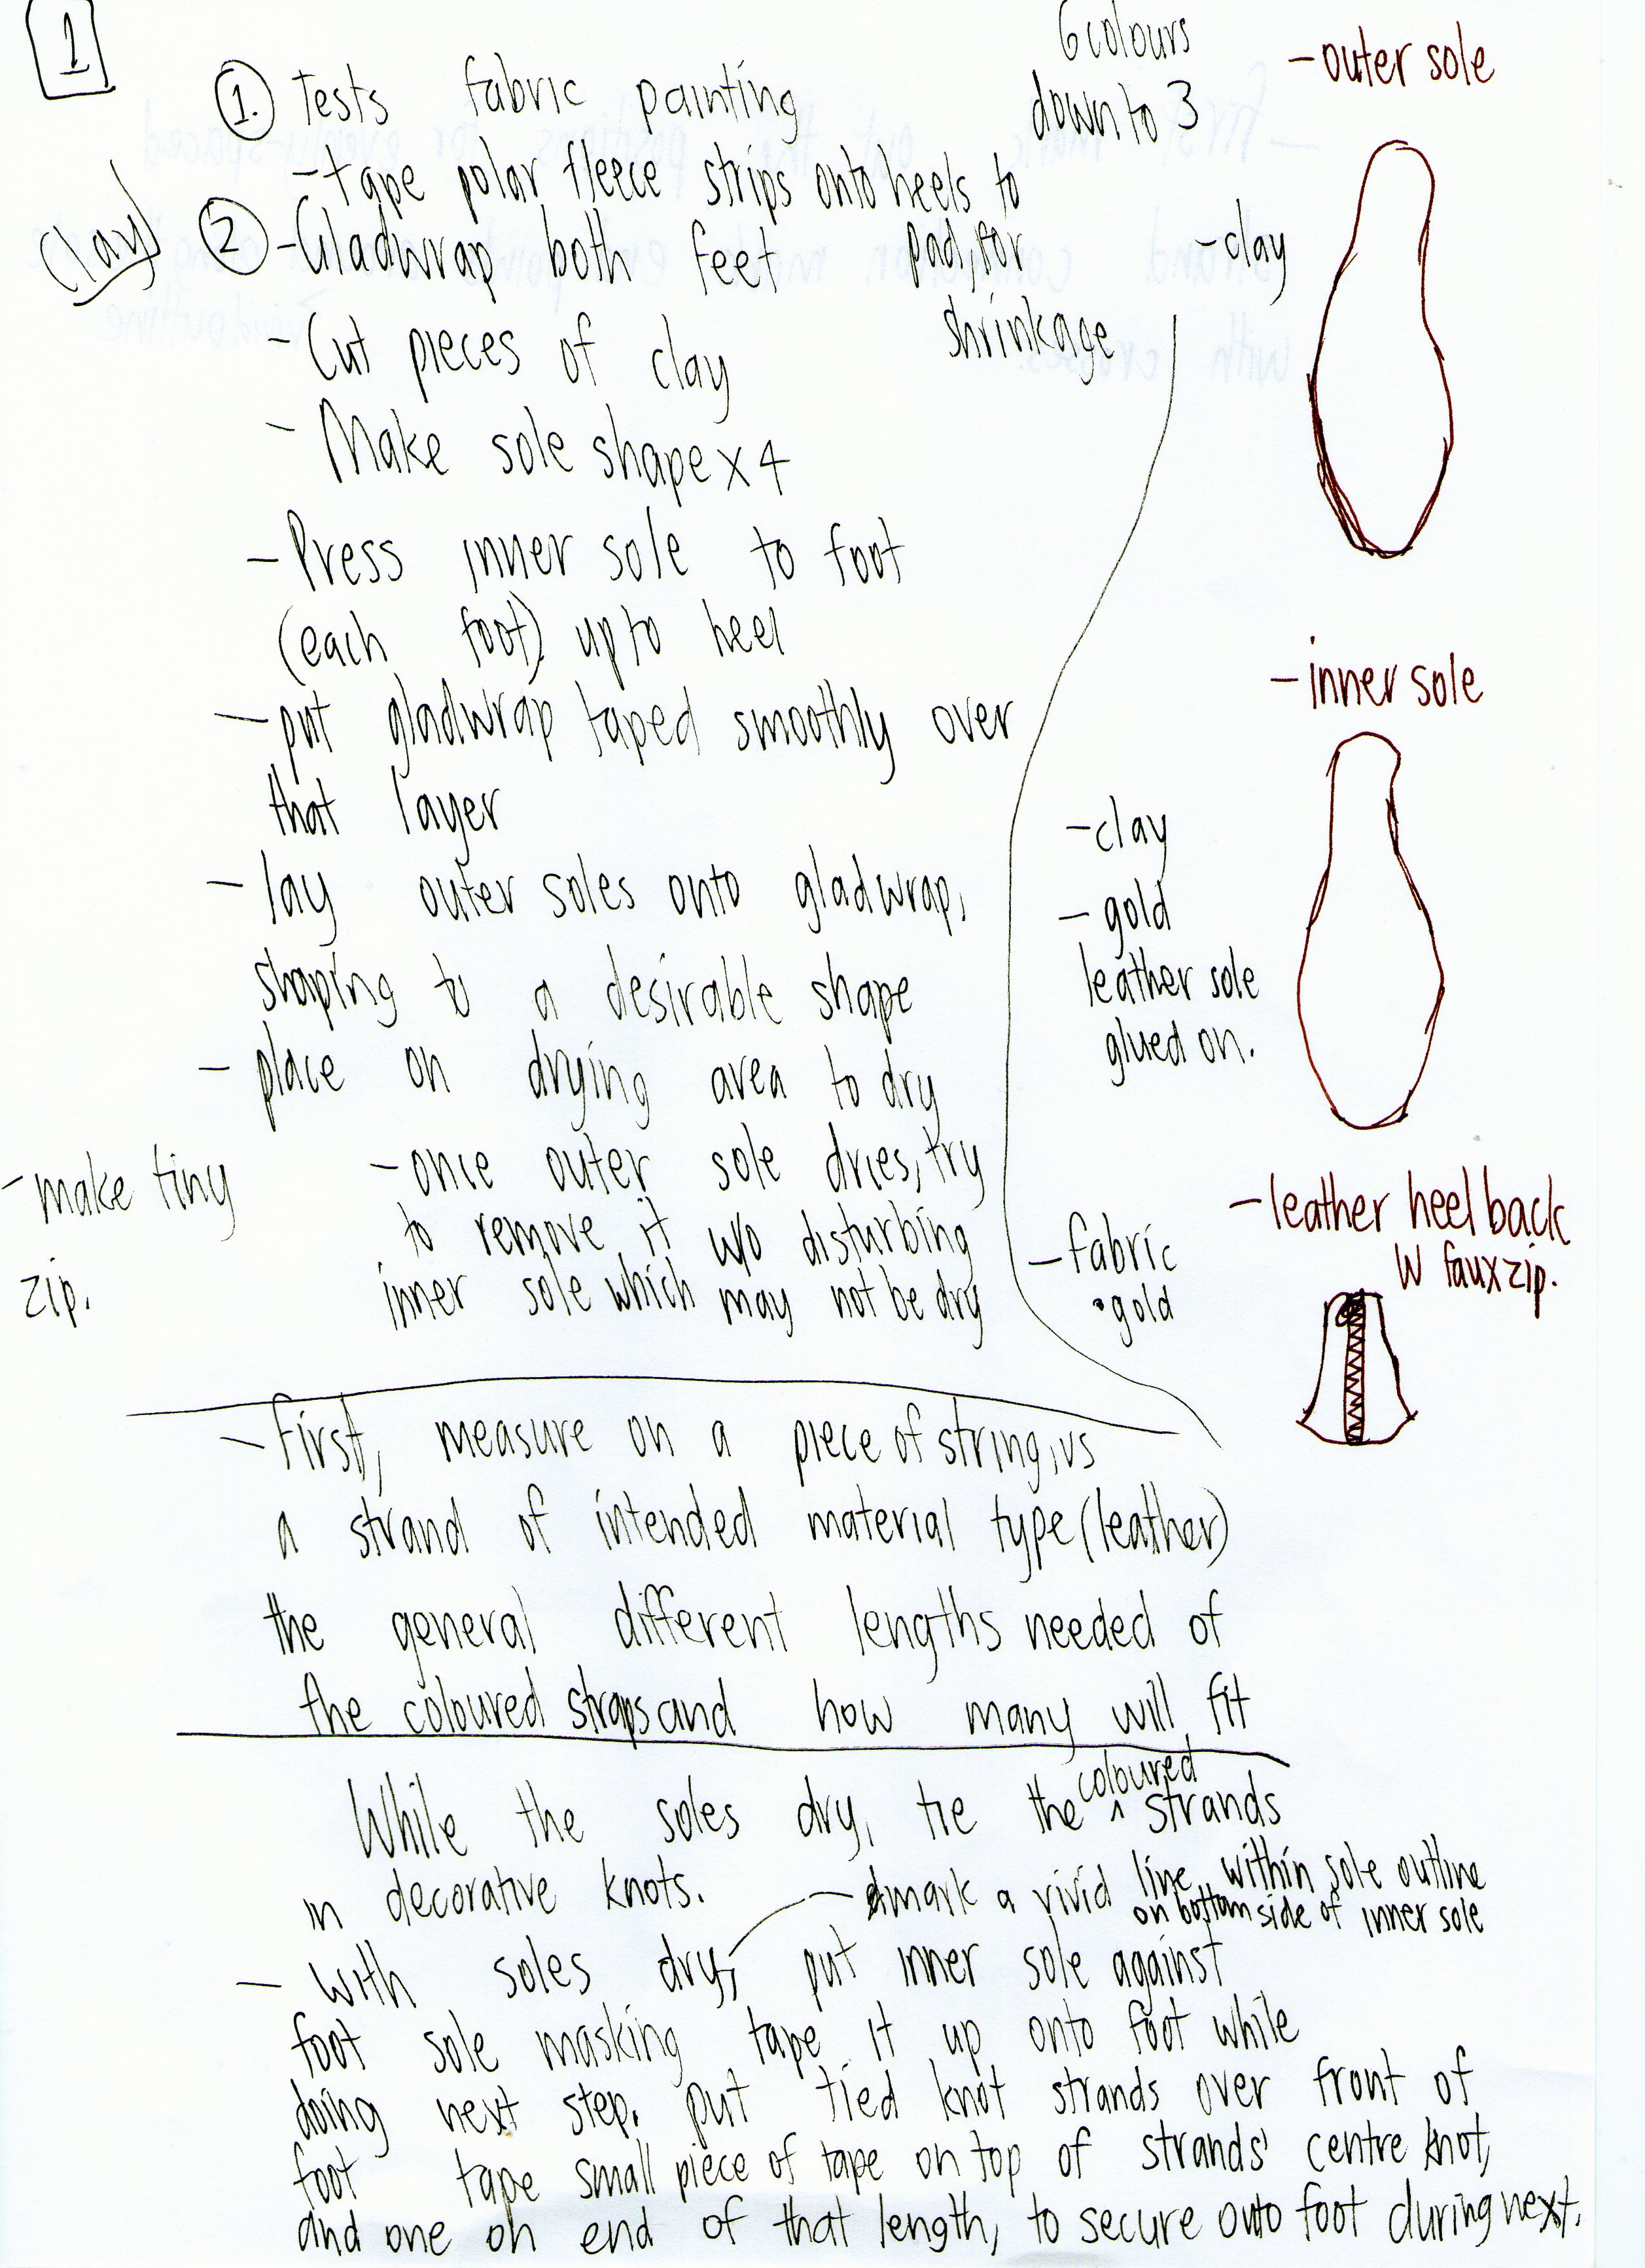 1
1. Tests fabric painting
6 colours
down to 3
- tape polar fleece strips onto heels to
pad, for
shrinkage
(clay)
2 - Gladwrap both feet
- Cut pieces of clay
- Make sole shape x 4
- Press inner sole to foot
(each foot) up to heel
- put gladwrap taped smoothly over
that layer
- lay outer soles onto gladwrap,
shaping to a desirable shape
- place on drying area to dry
- once outer sole dries, try
to remove it w/o disturbing
inner sole which may not be dry
- make tiny
zip.
- outer sole
- clay
- inner sole
- clay
- gold
leather sole
glued on.
- leather heel back
W faux zip.
- fabric
• gold
- First, measure on a piece of string, vs
a strand of intended material type (leather)
the general different lengths needed of
the coloured straps and how many will fit
While the soles dry, tie the ^ coloured strands
in decorative knots.
- mark a vivid line within sole outline
on bottom side of inner sole
- with soles dry, put inner sole against
foot sole masking tape it up onto foot while
doing next step. put tied knot strands over front of
foot tape small piece of tape on top of strands' centre knot,
and one on end of that length, to secure onto foot during next.